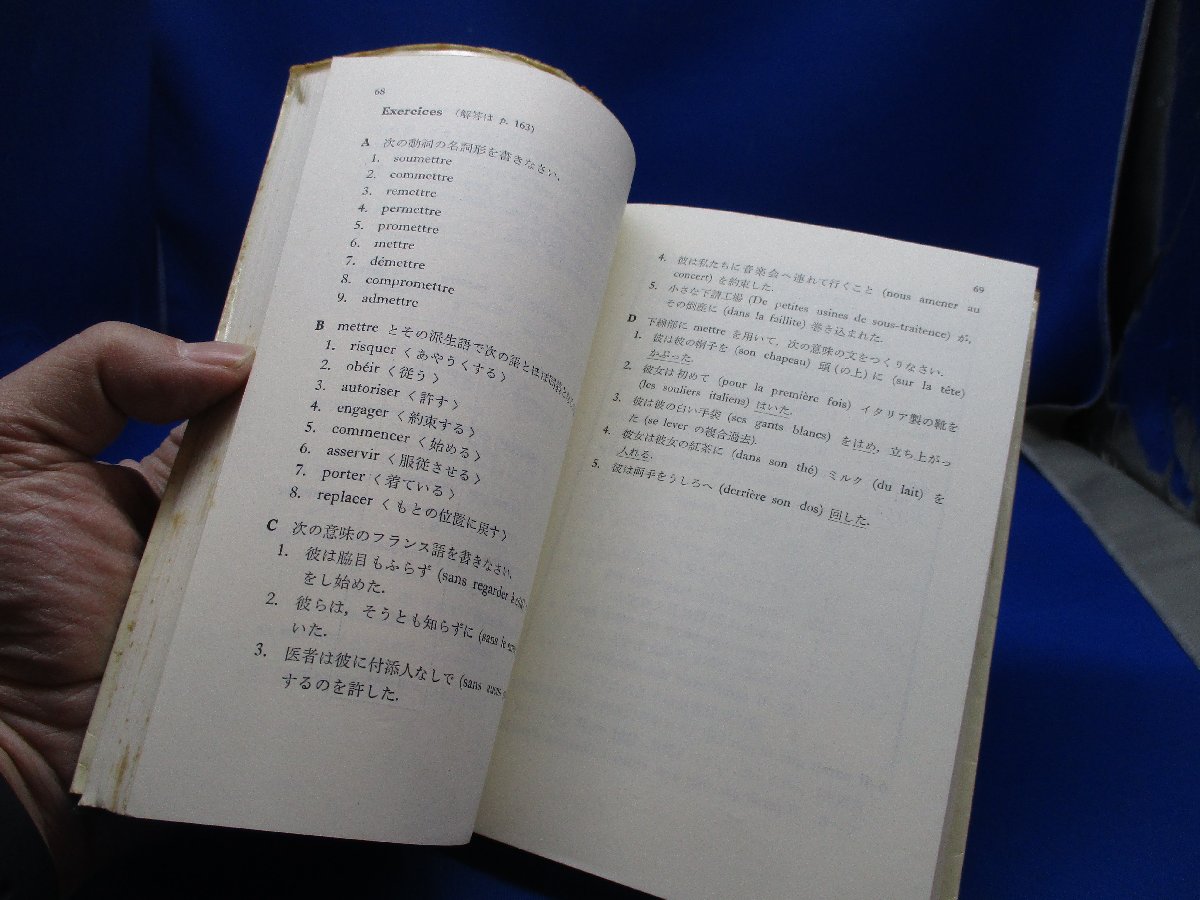 68
Exercices (解答は p. 163)
A 次の動詞の名詞形を書きなさい.
1. soumettre
2. commettre
3. remettre
4. permettre
5. promettre
6. mettre
7. démettre
8. compromettre
9. admettre
B mettre とその派生語で次の語とほぼ
1. risquer <あやうくする>
2. obéir <従う>
3. autoriser <許す>
4. engager <約束する>
5. commencer <始める>
6. asservir <服従させる>
7. porter <着ている>
8. replacer <もとの位置に戻す>
C 次の意味のフランス語を書きなさい.
1. 彼は脇目もふらず (sans regarder
をし始めた.
2. 彼らは, そうとも知らずに (sans le
いた.
3. 医者は彼に付添人なしで (sans
するのを許した.
69
4. 彼は私たちに音楽会へ連れて行くこと (nous amener au
concert) を約束した.
5. 小さな下請工場 (De petites usines de sous-traitence) が,
その倒産に (dans la faillite) 巻き込まれた.
D 下線部に mettre を用いて, 次の意味の文をつくりなさい.
1. 彼は彼の帽子を (son chapeau) 頭(の上)に (sur la tête)
かぶった.
2. 彼女は初めて (pour la première fois) イタリア製の靴を
(les souliers italiens) はいた.
3. 彼は彼の白い手袋 (ses gants blancs) をはめ, 立ち上がっ
た (se lever の複合過去).
4. 彼女は彼女の紅茶に (dans son thé) ミルク (du lait) を
入れる.
5. 彼は両手をうしろへ (derrière son dos) 回した.